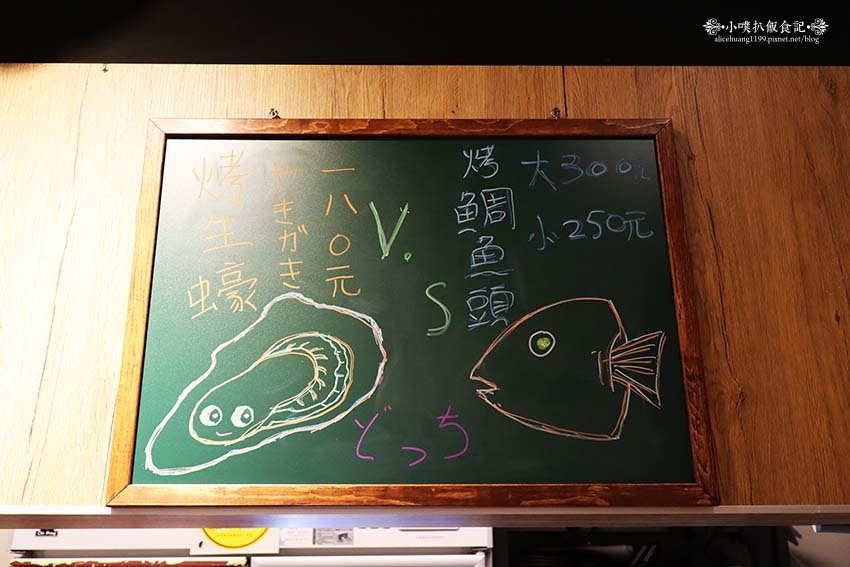 小噗扒飯食記
alicehuang1199.pixnet.net/blog
烤生蠔
やきがき
一八〇元
V.
S
烤鯛魚頭
大300元
小250元
どっち